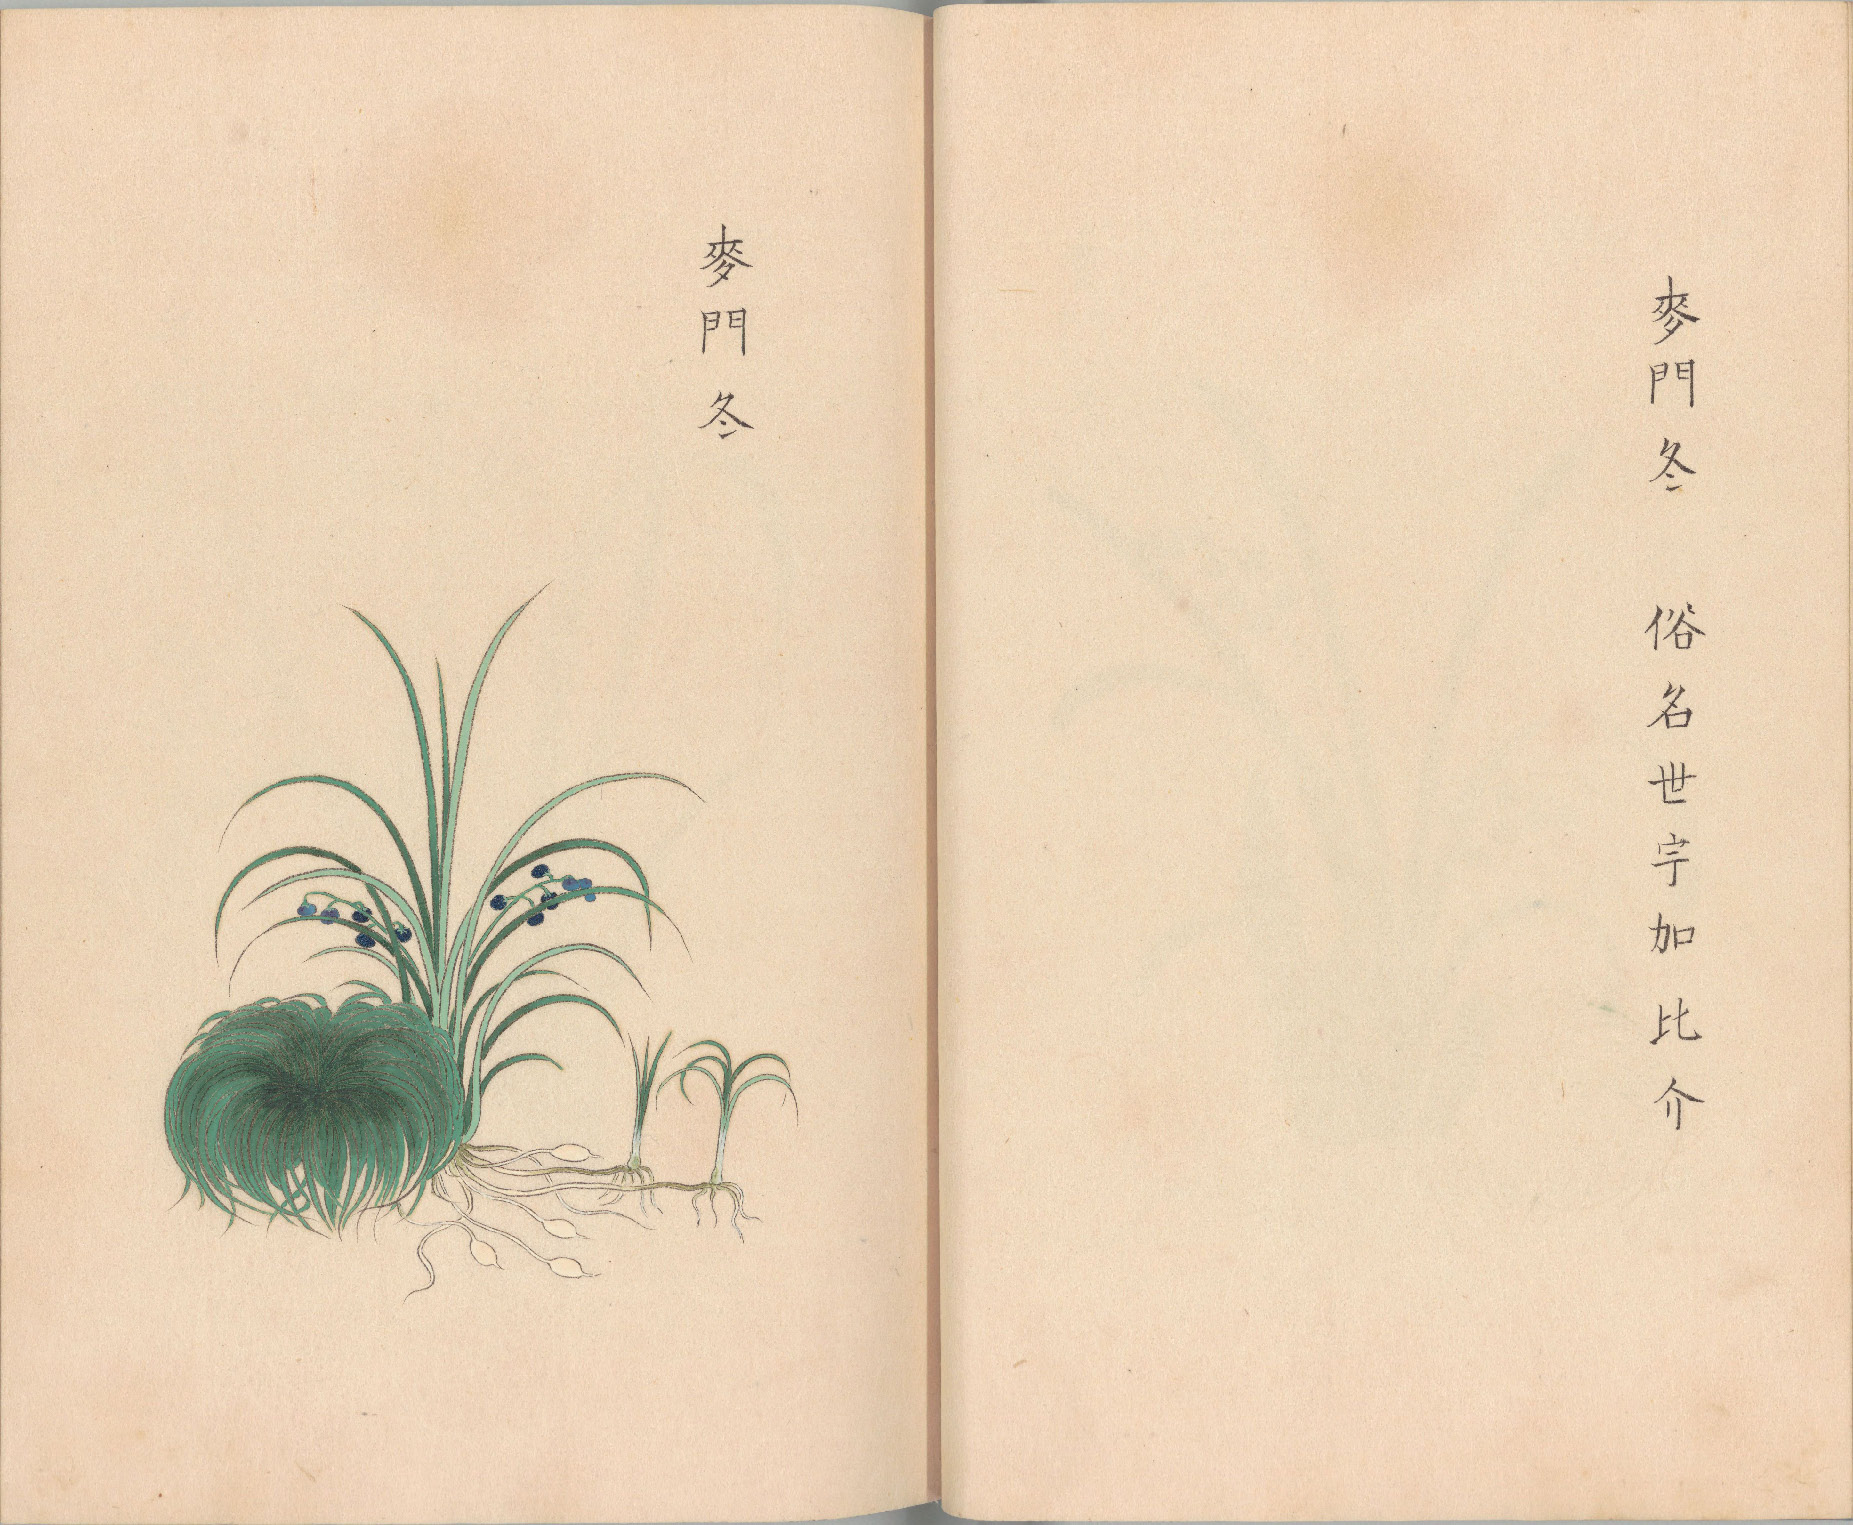 麥門冬 俗名世宇加比介
麥門冬